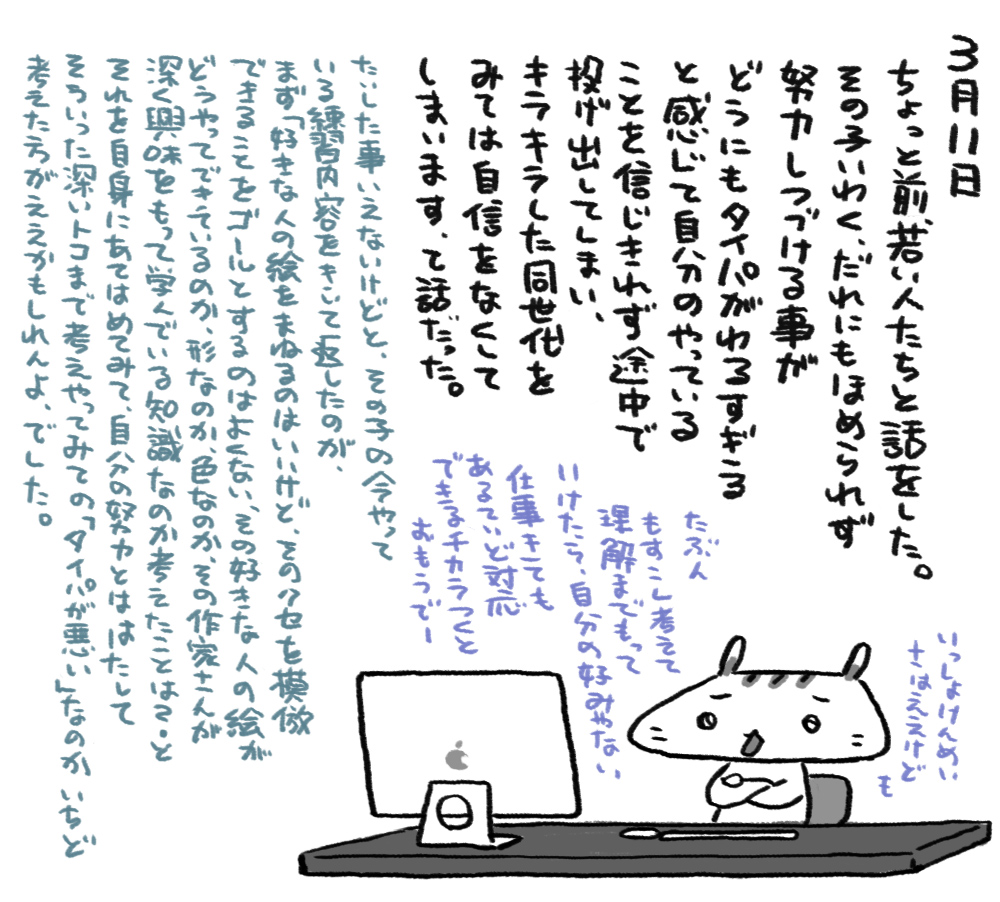 3月11日
ちょっと前、若い人たちと話をした。
その子いわく、だれにもほめられず
努力しつづける事が
どうにもタイパがわるすぎる
と感じて自分のやっている
ことを信じきれず途中で
投げ出してしまい、
キラキラした同世代を
みては自信をなくして
しまいます、て話だった。
たいした事いえないけどと、その子の今やって
いる練習内容をきいて返したのが、
まず「好きな人の絵をまねるのはいいけど、そのクセを模倣
できることをゴールとするのはよくない、その好きな人の絵が
どうやってできているのか、形なのか、色なのか、その作家さんが
深く興味をもって学んでいる知識なのか考えたことは?・と
それを自身にあてはめてみて、自分の努力とははたして
そういった深いトコまで考えやってみての「タイパが悪い」なのか いちど
考えた方がええかもしれんよ、でした。
いっしょけんめい
さはええけど
も
たぶん
もすこし考えて
理解までもって
いけたら、自分の好みやない
仕事きても
あるていど対応
できるチカラつくと
おもうでー